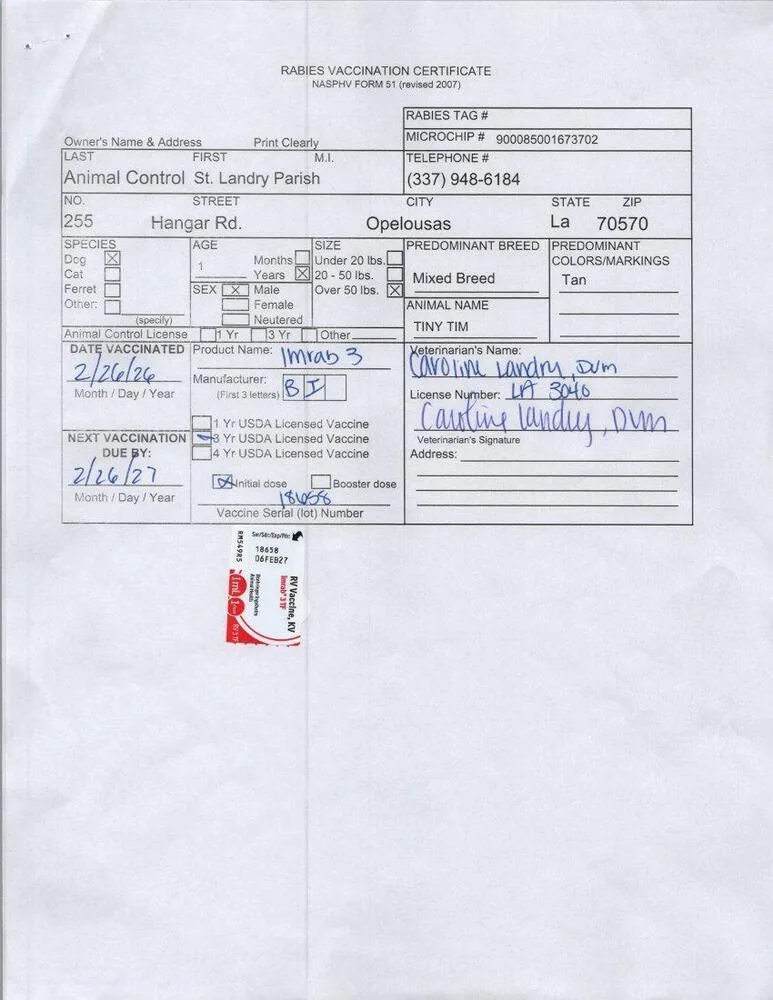 RABIES VACCINATION CERTIFICATE
NASPHV FORM 51 (revised 2007)
RABIES TAG #
Owner's Name & Address Print Clearly
MICROCHIP # 900085001673702
LAST FIRST M.I.
TELEPHONE #
Animal Control St. Landry Parish
(337) 948-6184
NO. STREET CITY STATE ZIP
255 Hangar Rd. Opelousas La 70570
SPECIES AGE SIZE PREDOMINANT BREED PREDOMINANT
COLORS/MARKINGS
Dog X
Cat
Ferret
Other:
(specify)
1 Months
Years X
SEX X Male
Female
Neutered
Under 20 lbs.
20 - 50 lbs.
Over 50 lbs. X
Mixed Breed
Tan
ANIMAL NAME
TINY TIM
Animal Control License 1 Yr 3 Yr Other
DATE VACCINATED
2/26/26
Month / Day / Year
NEXT VACCINATION
DUE BY:
2/26/27
Month / Day / Year
Product Name: Imrab 3
Manufacturer: B I
(First 3 letters)
1 Yr USDA Licensed Vaccine
3 Yr USDA Licensed Vaccine
4 Yr USDA Licensed Vaccine
X Initial dose Booster dose
18658
Vaccine Serial (lot) Number
Veterinarian's Name:
Caroline Landry, DVM
License Number: LA 3040
Caroline Landry, DVM
Veterinarian's Signature
Address:
18658
06FEB27
RM549R5
RV Vaccine, KV
Imrab® 3 TF
Boehringer Ingelheim
Animal Health
1 mL
RV 3 TF